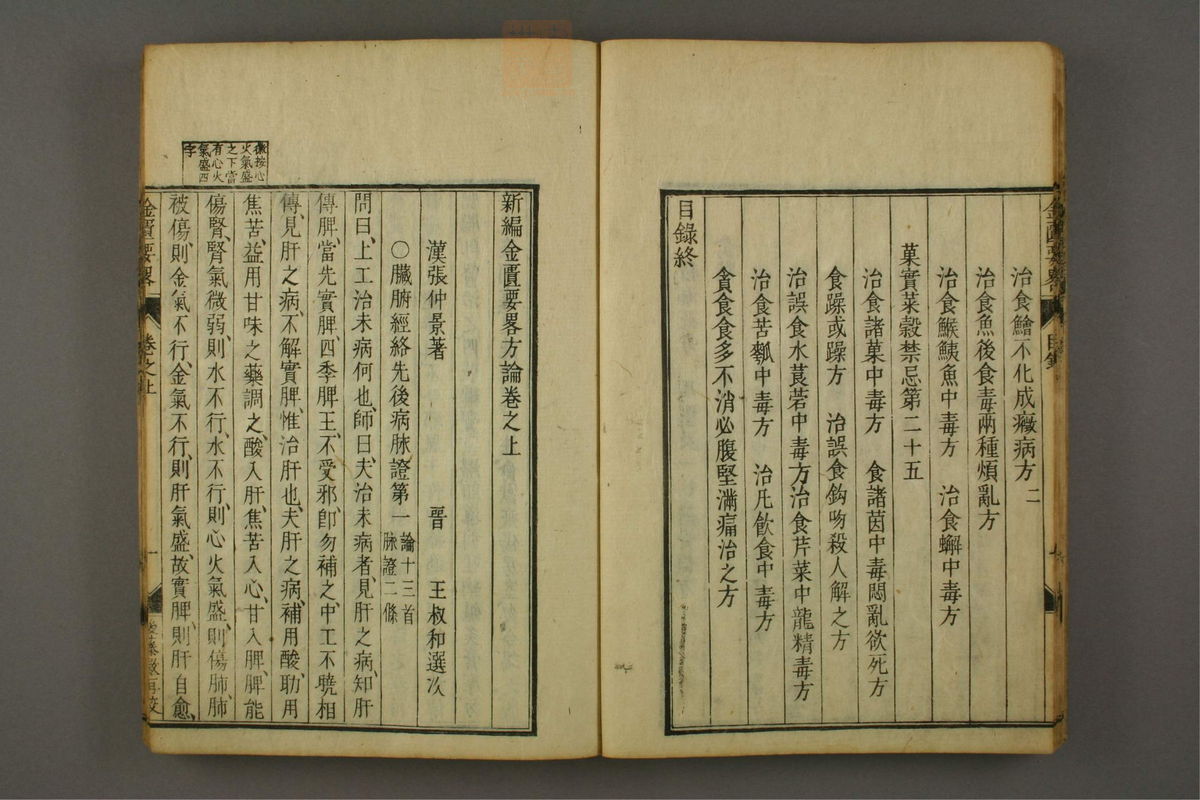 治食鱠不化成癥病方二
治食魚後食毒兩種煩亂方
治食鯸鮧魚中毒方　治食蠏中毒方
菓實菜穀禁忌第二十五
治食諸菓中毒方　食諸茵中毒悶亂欲死方
食躁或躁方　治誤食鈎吻殺人解之方
治誤食水莨菪中毒方治食芹菜中龍精毒方
治食苦瓠中毒方　治凡飲食中毒方
貪食食多不消必腹堅滿痛治之方
目錄終
新編金匱要畧方論卷之上
漢張仲景著　晉　王叔和選次
〇臟腑經絡先後病脉證第一　論十三首
脉證二條
問曰、上工治未病何也、師曰、夫治未病者、見肝之病、知肝
傳脾、當先實脾、四季脾王、不受邪、卽勿補之、中工不曉相
傳、見肝之病、不解實脾、惟治肝也、夫肝之病、補用酸、助用
焦苦、益用甘味之藥調之、酸入肝、焦苦入心、甘入脾、脾能
傷腎、腎氣微弱、則水不行、水不行、則心火氣盛、則傷肺、肺
被傷、則金氣不行、金氣不行、則肝氣盛、故實脾、則肝自愈、
徽按心
火氣盛
之下當
有心火
氣盛四
字
金匱要畧
卷之上
一
金匱要畧
目錄